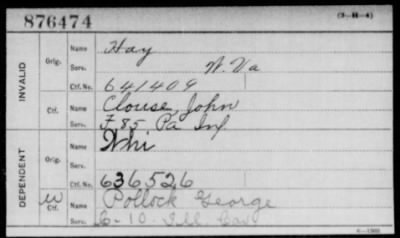 876474
(3—H—4)
INVALID
Orig.
Name Hay
Serv. W. Va
Ctf. No. 641409
Ctf.
Name Clouse, John
Serv. F 85 Pa Inf.
DEPENDENT
Orig.
Name
Serv.
Ctf. No. 636526
W Ctf.
Name Pollock George
Serv. E-10. Ill Cav